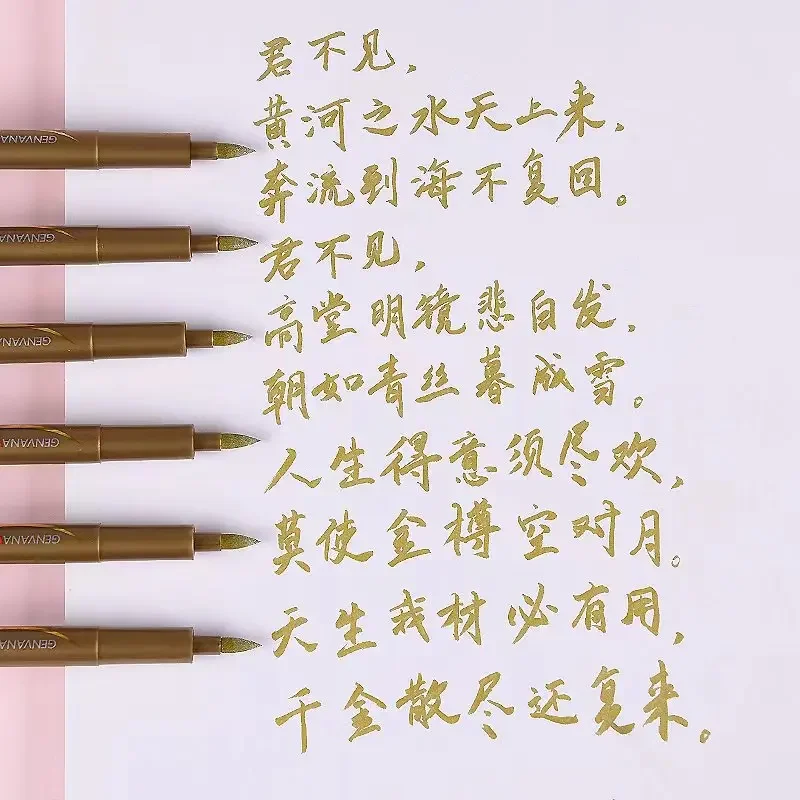 君不见，
黄河之水天上来，
奔流到海不复回。
君不见，
高堂明镜悲白发，
朝如青丝暮成雪。
人生得意须尽欢，
莫使金樽空对月。
天生我材必有用，
千金散尽还复来。
GENVANA
GENVANA
GENVANA
GENVANA
GENVANA
GENVANA